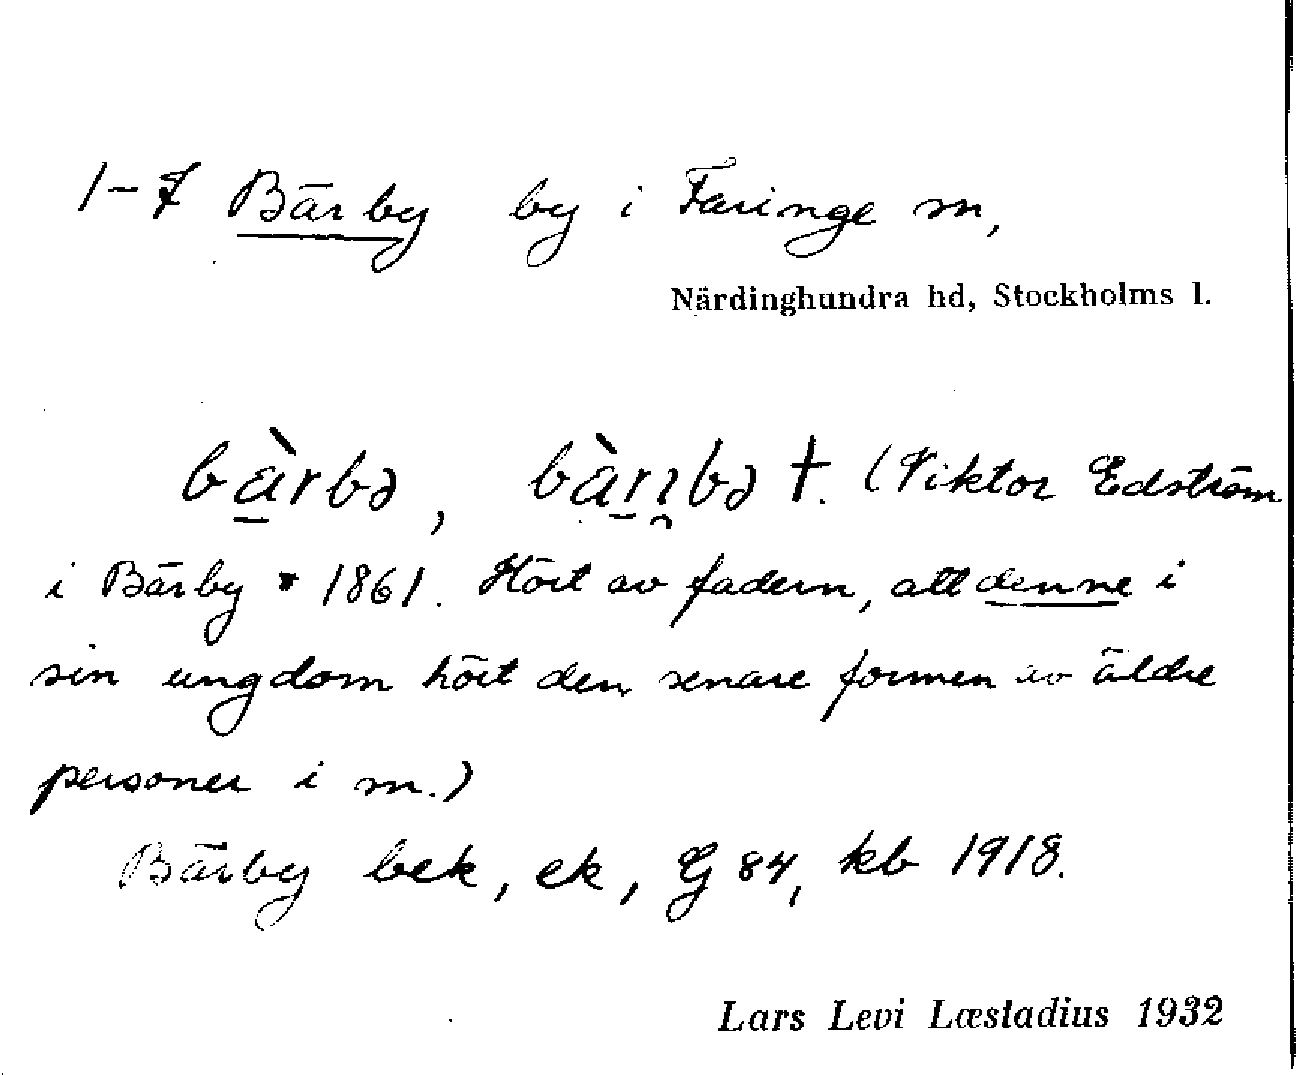 1-7 Bärby by i Faringe sn,
Närdinghundra hd, Stockholms l.
bàrbə, bàrɿbə †. (Viktor Edström
i Bärby * 1861. Hört av fadern, att denne i
sin ungdom hört den senare formen av äldre
personer i sn.)
Bärby bek, ek, G 84, kb 1918.
Lars Levi Læstadius 1932